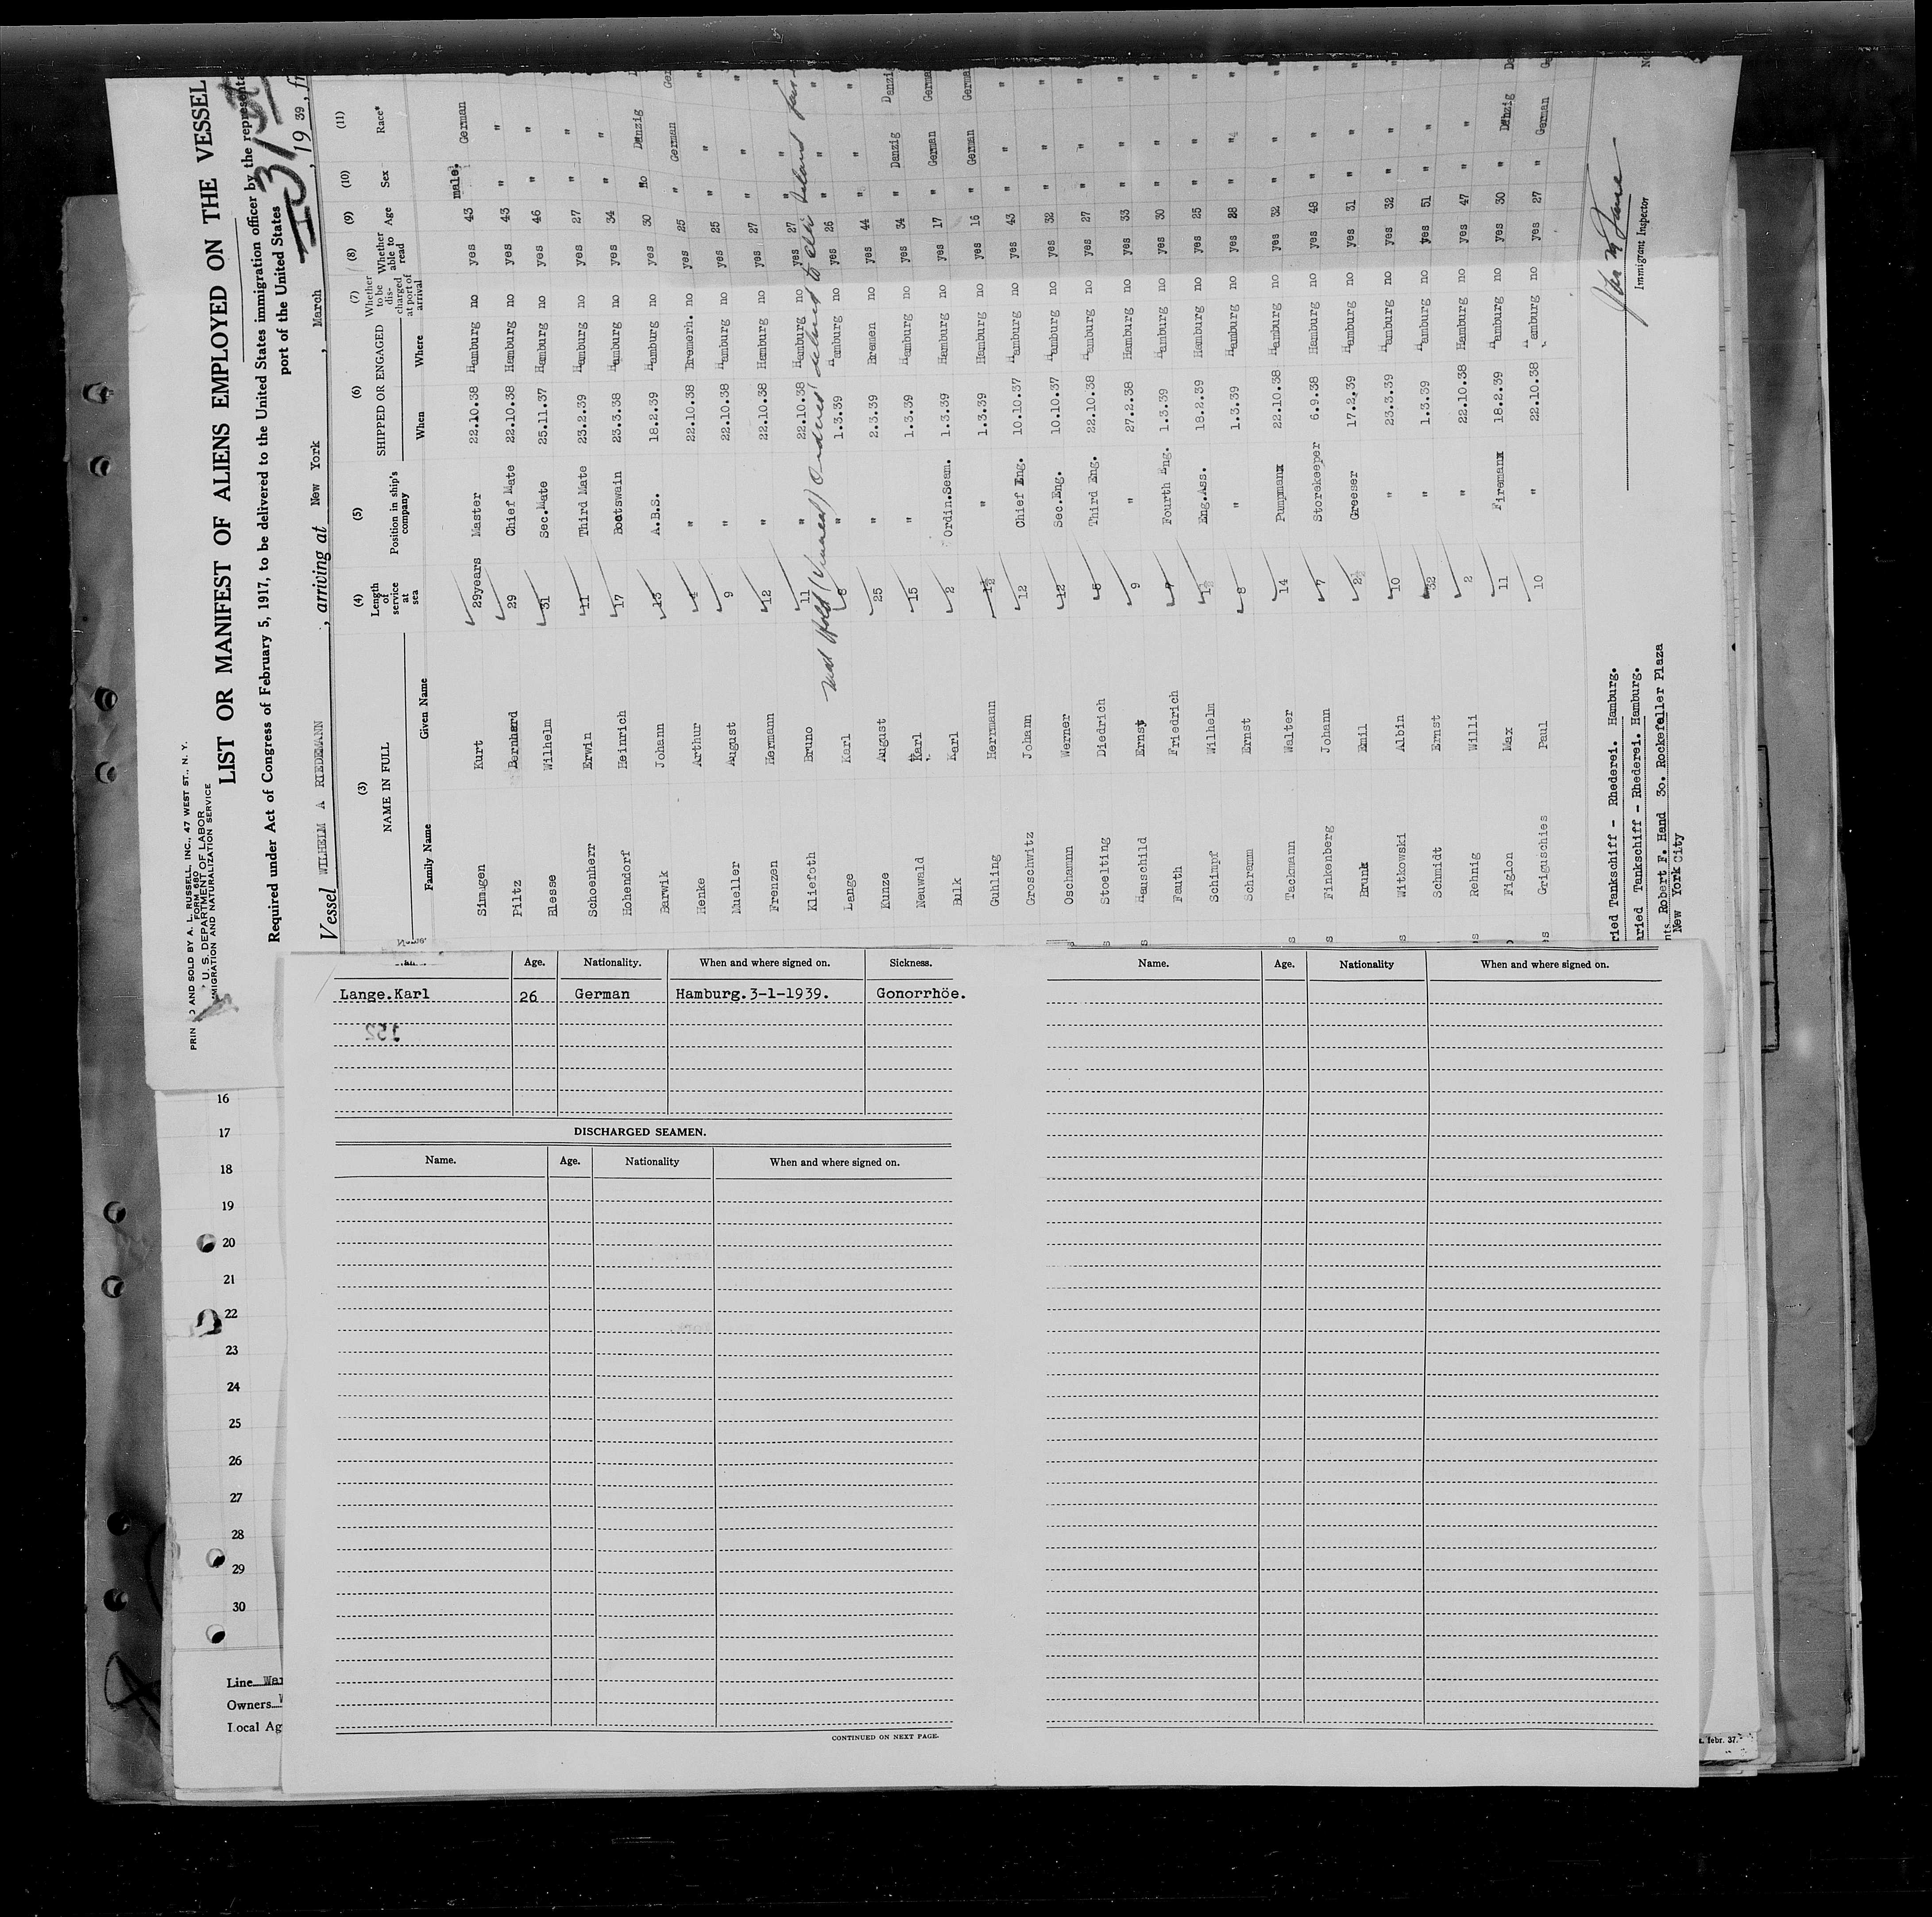 PRIN D AND SOLD BY A. L. RUSSELL, INC., 47 WEST ST., N. Y.
FORM 680
U. S. DEPARTMENT OF LABOR
MIGRATION AND NATURALIZATION SERVICE
LIST OR MANIFEST OF ALIENS EMPLOYED ON THE VESSEL
Required under Act of Congress of February 5, 1917, to be delivered to the United States immigration officer by the representa
port of the United States
Vessel WILHELM A RIEDEMANN , arriving at New York , March 31 , 19 39, fr
(3) (4) (5) (6) (7) (8) (9) (10) (11)
NAME IN FULL Length of service at sea Position in ship's company SHIPPED OR ENGAGED Whether to be discharged at port of arrival Whether able to read Age Sex Race*
Family Name Given Name When Where
Simagen Kurt 29years Master 22.10.38 Hamburg no yes 43 male. German
Piltz Bernhard 29 Chief Mate 22.10.38 Hamburg no yes 43 " "
Blesse Wilhelm 31 Sec.Mate 25.11.37 Hamburg no yes 46 " "
Schoenherr Erwin 11 Third Mate 23.2.39 Hamburg no yes 27 " "
Hohendorf Heinrich 17 Bootswain 23.3.38 Hamburg no yes 34 " "
Barwik Johann 13 A.B.S. 18.2.39 Hamburg no yes 30 Danzig
Henke Arthur 4 " 22.10.38 Bremerh. no yes 25 " German
Mueller August 9 " 22.10.38 Hamburg no yes 25 " "
Frenzen Hermann 12 " 22.10.38 Hamburg no yes 27 " "
Kliefoth Bruno 11 " 22.10.38 Hamburg no yes 27 " "
Lange Karl 8 " 1.3.39 Hamburg no yes 26 " "
Kunze August 25 " 2.3.39 Bremen no yes 44 " "
Neuwald Karl 15 " 1.3.39 Hamburg no yes 34 " Danzig Danzig
Bulk Karl 2 Ordin.Seam. 1.3.39 Hamburg no yes 17 " German
Guhling Herrmann 1½ " 1.3.39 Hamburg no yes 16 " German
Groschwitz Johann 12 Chief Eng. 10.10.37 Hamburg no yes 43 " "
Oschamnn Werner 12 Sec.Eng. 10.10.37 Hamburg no yes 32 " "
Stoelting Diedrich 6 Third Eng. 22.10.38 Hamburg no yes 27 " "
Hauschild Ernst 9 " 27.2.38 Hamburg no yes 33 " "
Fauth Friedrich 7 Fourth Eng. 1.3.39 Hamburg no yes 30 " "
Schimpf Wilhelm 1½ Eng.Ass. 18.2.39 Hamburg no yes 25 " "
Schramm Ernst 8 " 1.3.39 Hamburg no yes 28 " "
Tackmann Walter 14 Pumpmanx 22.10.38 Hamburg no yes 32 " "
Finkenberg Johann 7 Storekeeper 6.9.38 Hamburg no yes 48 " "
Brunk Emil 2½ Greeser 17.2.39 Hamburg no yes 31 " "
Witkowski Albin 10 " 23.3.39 Hamburg no yes 32 " "
Schmidt Ernst 32 " 1.3.39 Hamburg no yes 51 " "
Rehnig Willi 2 " 22.10.38 Hamburg no yes 47 " "
Figlon Max 11 Firemanx 18.2.39 Hamburg no yes 30 " Danzig
Griguschies Paul 10 22.10.38 Hamburg no yes 27 " German
Immigrant Inspector
ried Tankschiff - Rhederei. Hamburg.
aried Tankschiff - Rhederei. Hamburg.
nts Robert F. Hand 30. Rockefeller Plaza
New York City
Age. Nationality. When and where signed on. Sickness.
Lange.Karl 26 German Hamburg.3-1-1939. Gonorrhöe.
152
DISCHARGED SEAMEN.
Name. Age. Nationality When and where signed on.
CONTINUED ON NEXT PAGE.
Name. Age. Nationality When and where signed on.
16
17
18
19
20
21
22
23
24
25
26
27
28
29
30
Line War
Owners W
Local Ag
febr. 37.